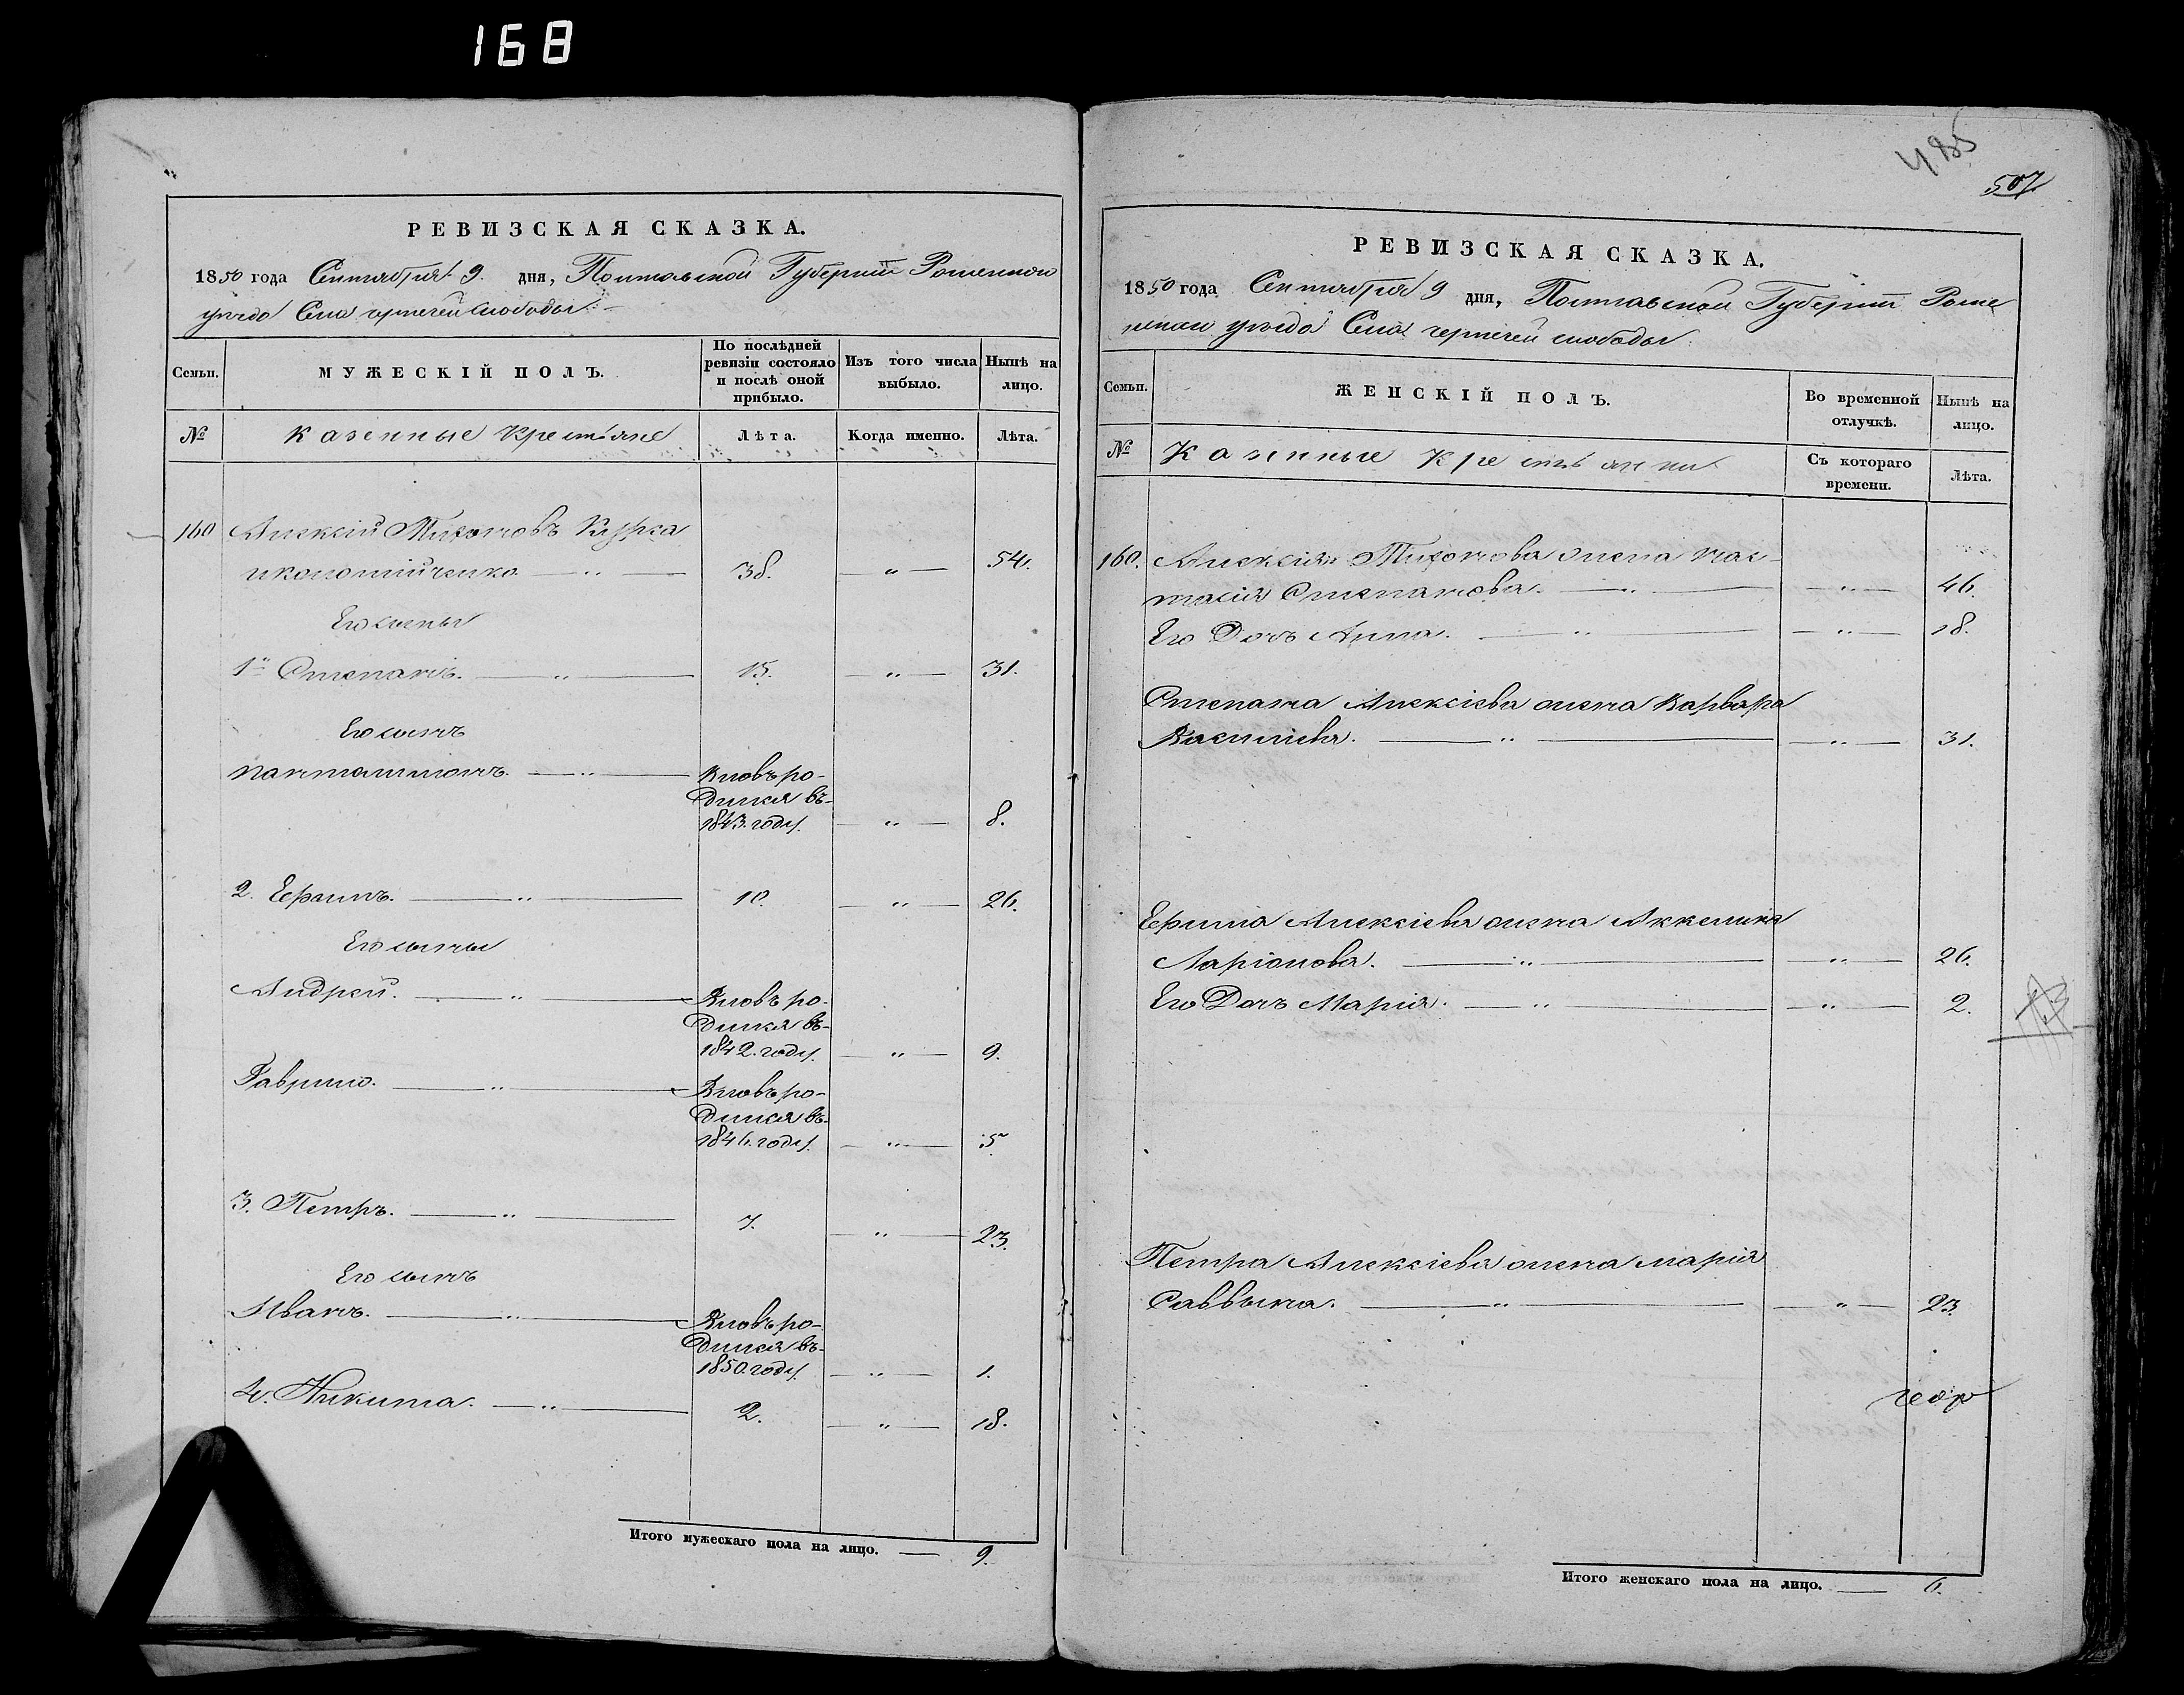 168
РЕВИЗСКАЯ СКАЗКА.
1850 года Сентября 9. дня, Полтавской Губерніи Роменскои
уѣзда Села чернечей слободы
Семьи.
МУЖЕСКІЙ ПОЛЪ.
По послѣдней
ревизіи состояло
и послѣ оной
прибыло.
Изъ того числа
выбыло.
Нынѣ на
лицо.
№
Казенные Крестьяне
Лѣта.
Когда именно.
Лѣта.
160
Алексій Тихоновъ
38. 54.
Его сыны
1й Степанъ. 15. 31.
Его сынъ
Пантелимонъ. Вновь ро-
дился въ
1843. году. 8.
2. Ефимъ. 10. 26.
Его сыны
Андрей. Вновь ро-
дился въ
1842. году. 9.
Гаврило. Вновь ро-
дился въ
1846. году. 5
3. Петръ. 7. 23.
Его сынъ
Иванъ. Вновь ро-
дился въ
1850. году. 1.
4. Никита. 2. 18.
Итого мужескаго пола на лицо. 9.
485
507
РЕВИЗСКАЯ СКАЗКА.
1850 года Сентября 9 дня, Полтавской Губерніи Роме
нскои уѣзда Села чернечей слободы
Семьи.
ЖЕНСКІЙ ПОЛЪ.
Во временной
отлучкѣ.
Нынѣ на
лицо.
№
Казенные Крестьянки
Съ котораго
времени.
Лѣта.
160. Алексія Тихонова жена Нас-
тасія Степанова. 46.
Его Дочь Анна. 18.
Степана Алексіева жена Варвара
Василіева. 31.
Ефима Алексіева жена Аккелина
Ларіонова. 26.
Его Дочь Марія. 2.
Петра Алексіева жена Марія
Саввина. 23.
Итого женскаго пола на лицо. 6.